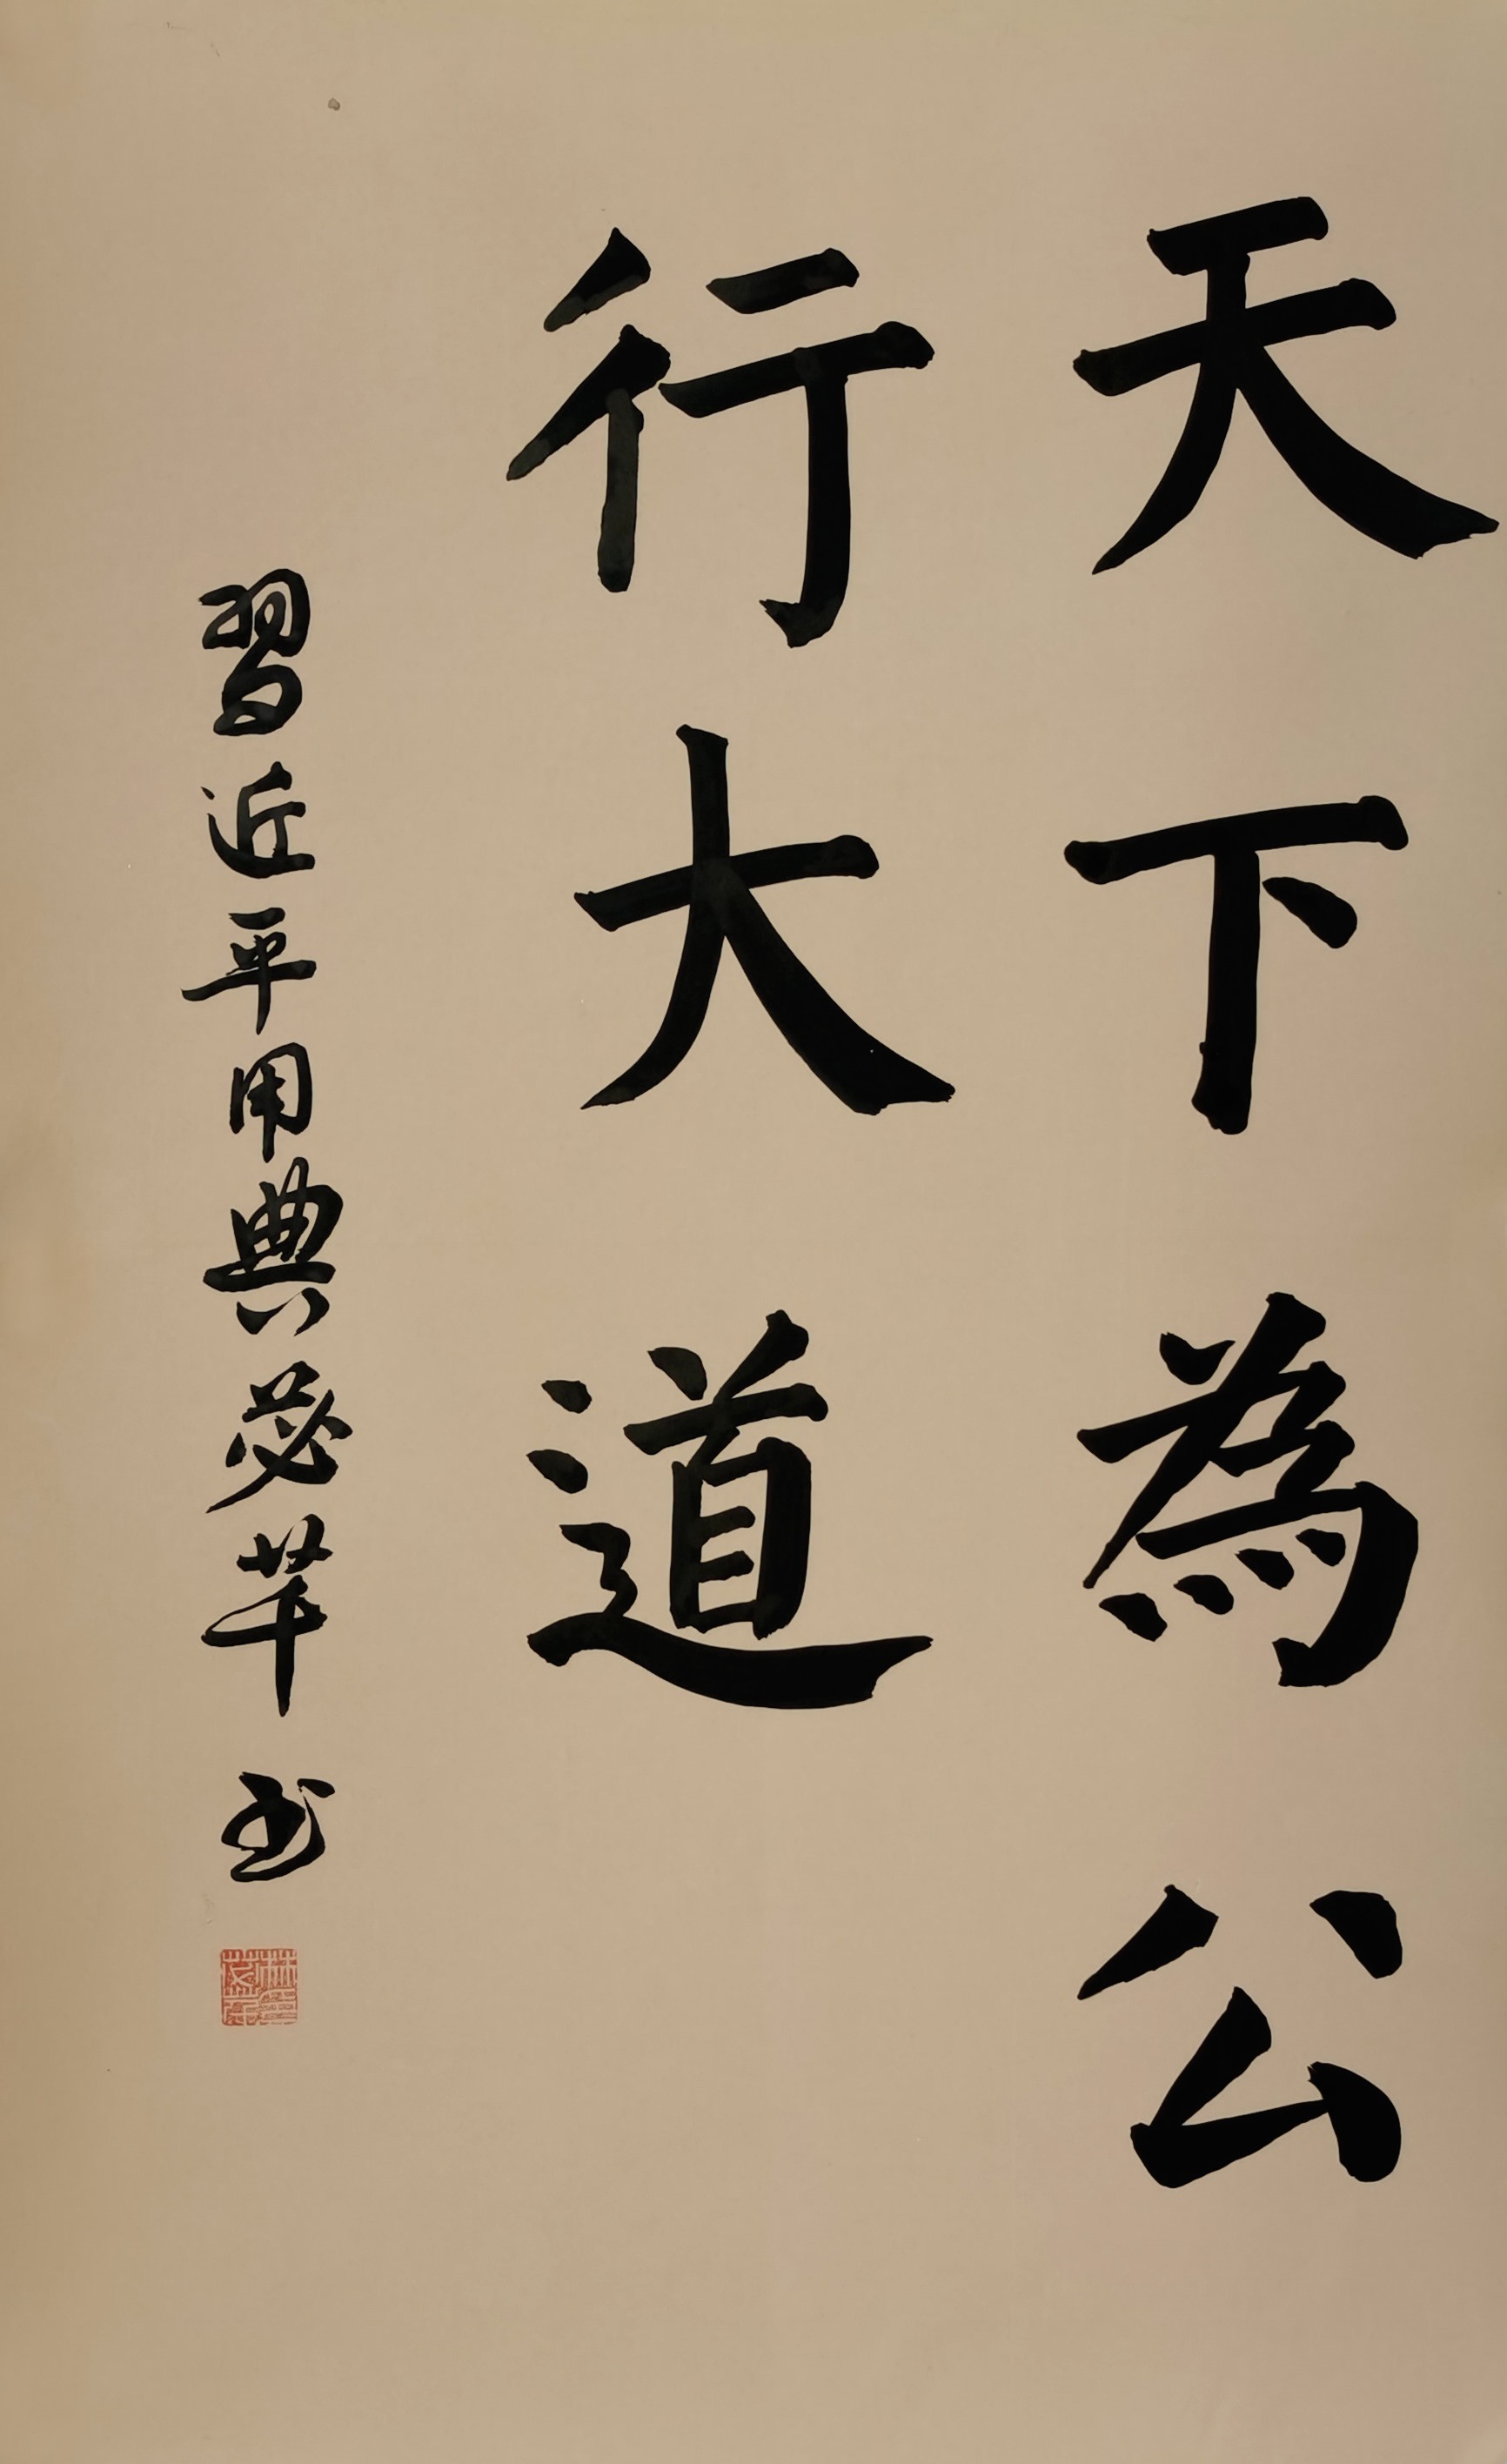 天下為公
行大道
習近平用典苾華书